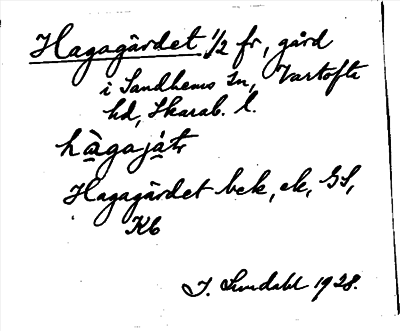 Hagagärdet 1/2 fr, gård
i Sandhems sn, Vartofta
hd, Skarab. l.
hàgajátr
Hagagärdet bek, ek, GS,
Kb
J. Sundahl 1928.